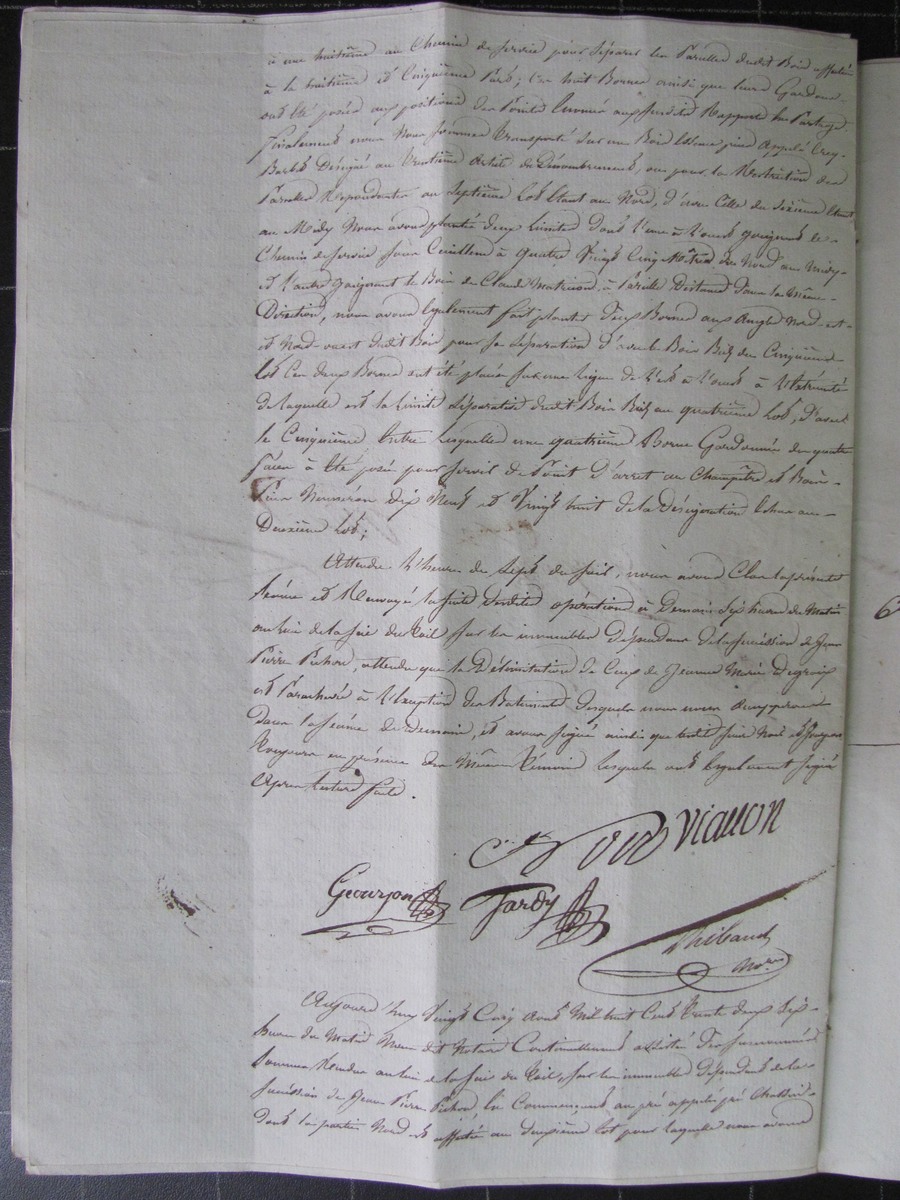 à une huitième au Chemin de service pour séparer les Parcelles dudit Bois affectées
à la huitième et Cinquième Part; Ces huit Bornes ainsi que leurs Gardons
ont été posées aux positions des Points énoncés au susdit Rapport de Partage
Finalement nous nous sommes transporté sur un Bois essence pins appelé
Désigné au Ventième Article du Dénombrement, ou pour la Restriction des
Parcelles Répondantes au Septième lot étant au Nord, d'avec celle du sixième étant
au Midy Nous avons plantés deux Limites dont l'une à l'ouest joignant le
Chemin de servir pour à quatre Vingt Cinq Mètres du Nord au midy
et l'autre joignant le Bois de Claude à pareille Distance dans la même
Direction, nous avons également fait planter deux Bornes aux angles Nord-est
et Nord-ouest dudit Bois pour sa séparation d'avec le Bois du Cinquième
lot Ces deux Bornes ont été placées sur une ligne de l'est à l'ouest à l'extrémité
de laquelle est la Limite séparative dudit Bois au quatrième lot, d'avec
le Cinquième Entre lesquelles une quatrième Borne Gardonnée de quatre
faces à été posée pour servir de Point d'arret au Champêtre et Bois
Pins Numéros dix Neuf et Vingt huit de la Désignation échus au
Deuxième lot;
Attendu l'heure de Sept du soir, nous avons Clos la présente
séance et Renvoyé la suite desdites opérations à Demain six heures du Matin
au lieu de la sur les immeubles dépendans de la succession de Jean
Pierre Pichon, attendu que la Délimitation de Ceux de Jeanne Marie
est Parachevée à l'exception des Batiments desquels nous nous occuperons
dans la séance de Demain, et avons signé ainsi que lesdits sieurs Noel et
Toujours en présence des Mêmes Témoins lesquels ont également signé
Après lecture faite.
Viallon
Geourjon Tardy
Thibaud
Nore
Aujourd'huy Vingt Cinq Août Mil huit Cent Trente deux Six
heures du Matin Nous dit Notaire Continuellement assisté des susnommés
Sommes Rendus au lieu de la sur les immeubles dépendant de la
succession de Jean Pierre Pichon, En Commençant au pré appelé pré
dont la partie Nord est affectée au deuxième lot pour laquelle nous avons